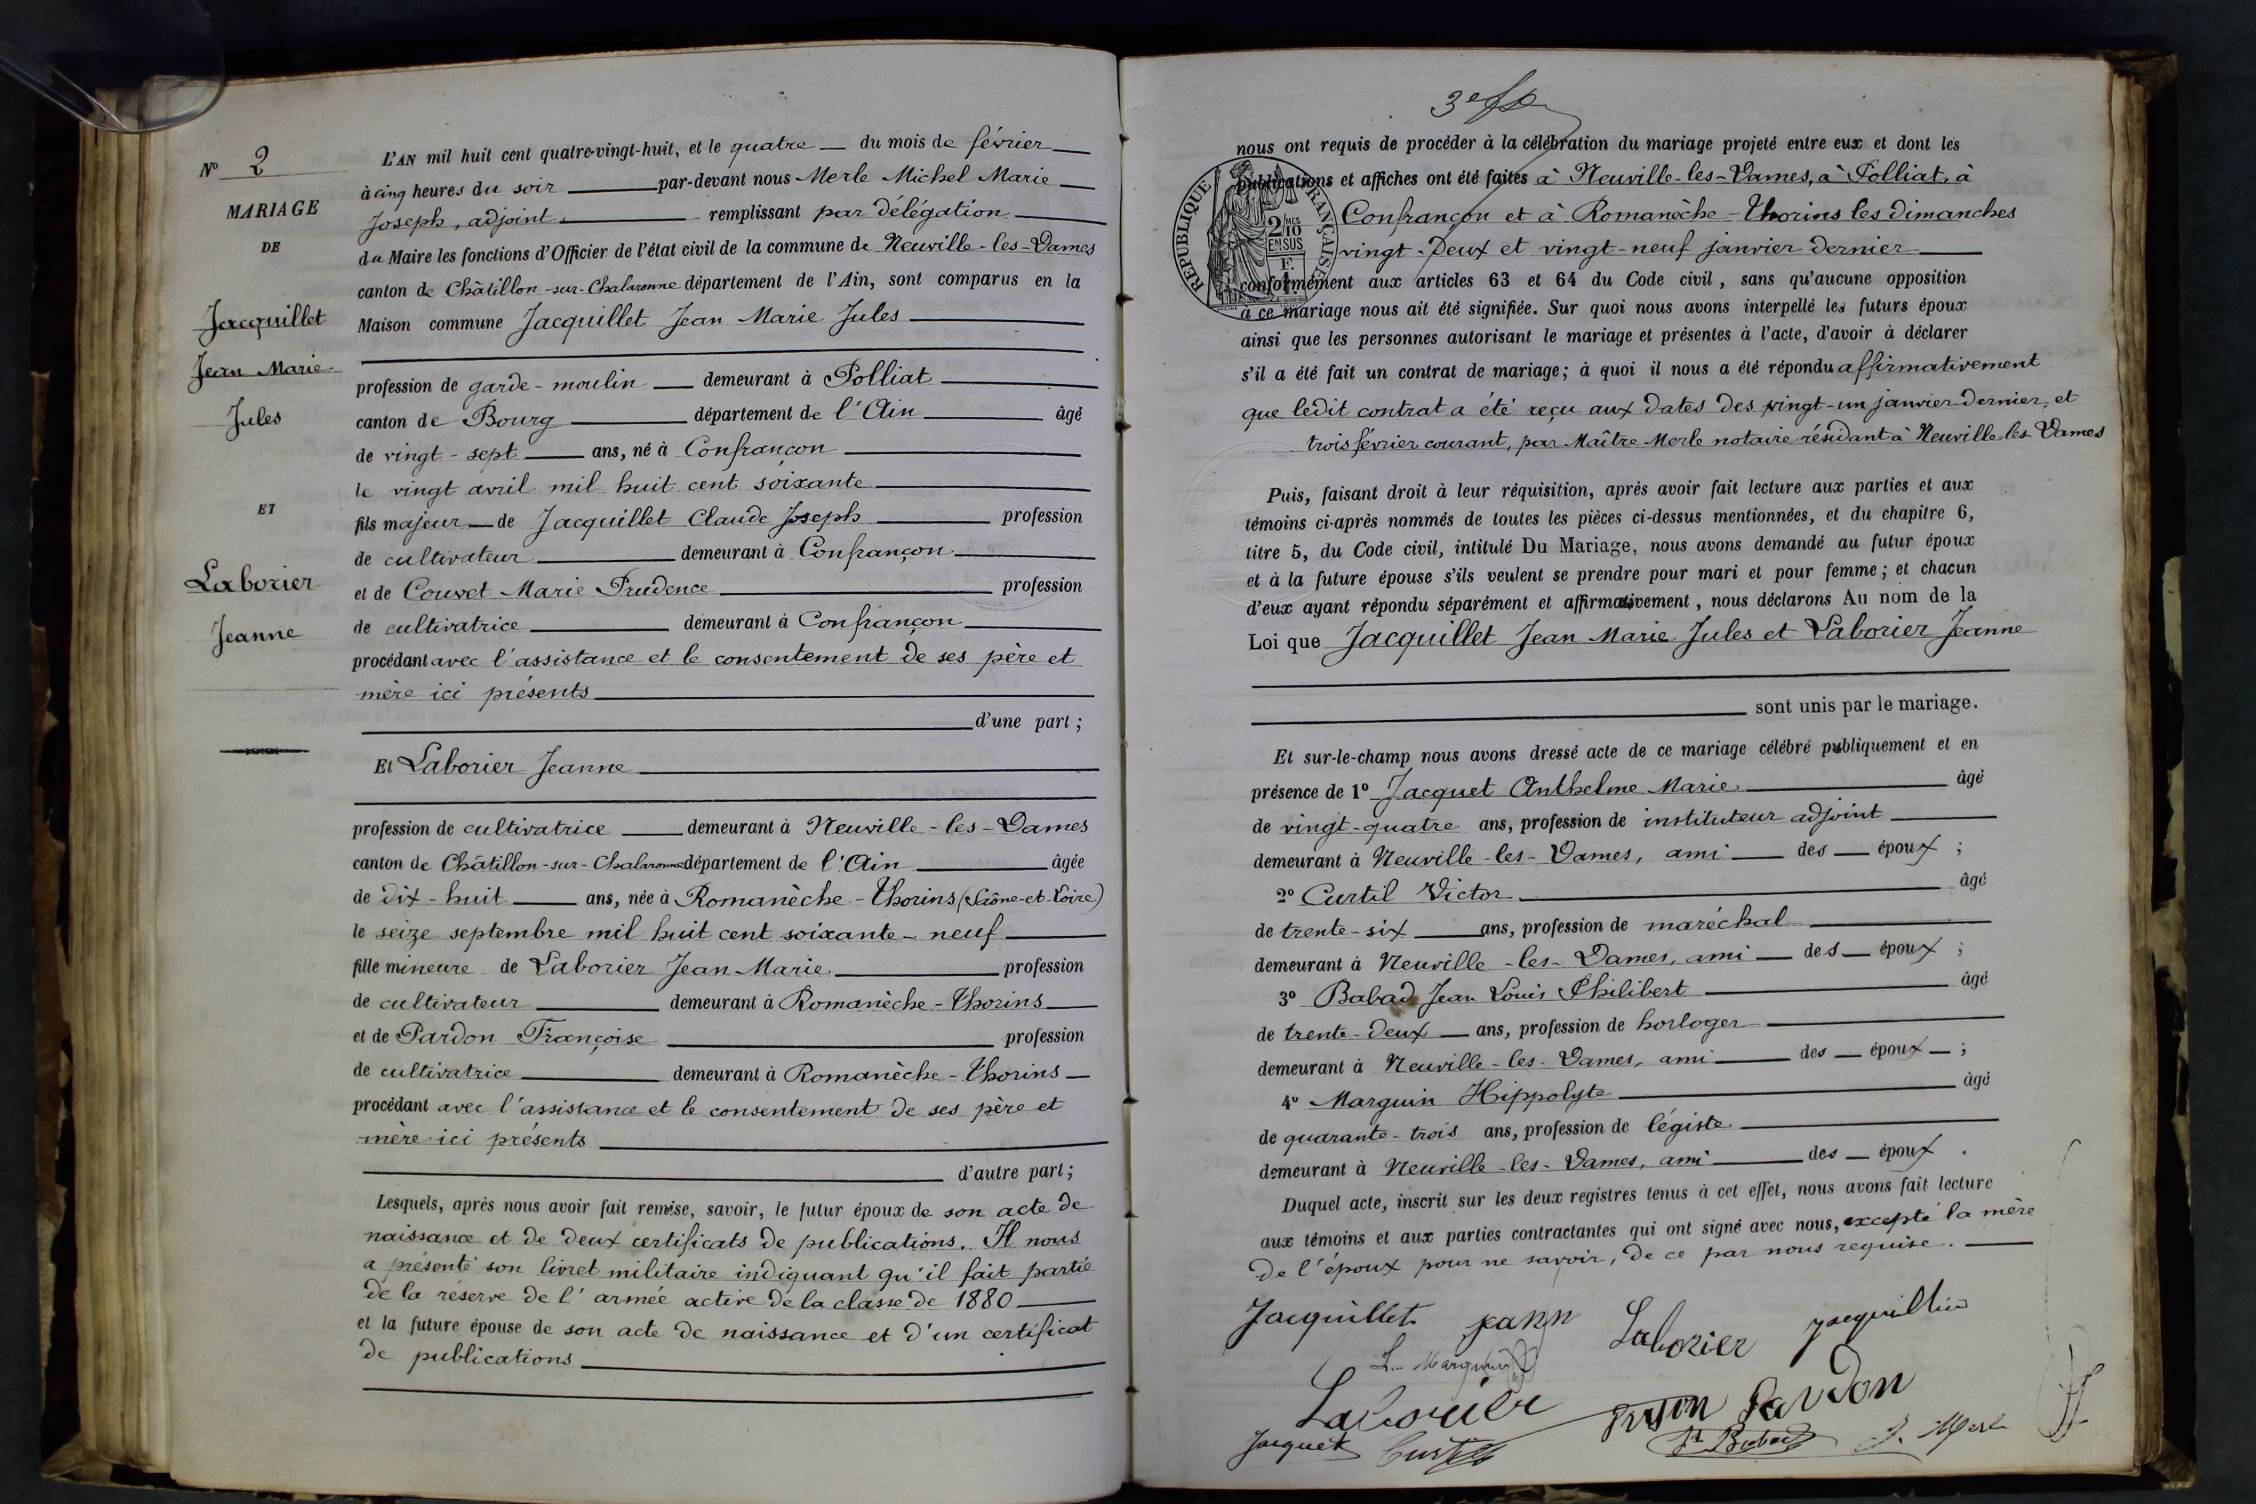 N° 2
MARIAGE
DE
Jacquillet
Jean Marie
Jules
ET
Laborier
Jeanne
L'AN mil huit cent quatre-vingt-huit, et le quatre du mois de février
à cinq heures du soir par-devant nous Merle Michel Marie
Joseph, adjoint remplissant par délégation
du Maire les fonctions d'Officier de l'état civil de la commune de Neuville-les-Dames
canton de Châtillon-sur-Chalaronne département de l'Ain, sont comparus en la
Maison commune Jacquillet Jean Marie Jules
profession de garde-moulin demeurant à Polliat
canton de Bourg département de l'Ain âgé
de vingt-sept ans, né à Confrançon
le vingt avril mil huit cent soixante
fils majeur de Jacquillet Claude Joseph profession
de cultivateur demeurant à Confrançon
et de Couvet Marie Prudence profession
de cultivatrice demeurant à Confrançon
procédant avec l'assistance et le consentement de ses père et
mère ici présents
d'une part ;
Et Laborier Jeanne
profession de cultivatrice demeurant à Neuville-les-Dames
canton de Châtillon-sur-Chalaronne département de l'Ain âgée
de dix-huit ans, née à Romanèche-Thorins (Saône-et-Loire)
le seize septembre mil huit cent soixante-neuf
fille mineure de Laborier Jean Marie profession
de cultivateur demeurant à Romanèche-Thorins
et de Pardon Françoise profession
de cultivatrice demeurant à Romanèche-Thorins
procédant avec l'assistance et le consentement de ses père et
mère ici présents
d'autre part ;
Lesquels, après nous avoir fait remise, savoir, le futur époux de son acte de
naissance et de deux certificats de publications. Il nous
a présenté son livret militaire indiquant qu'il fait partie
de la réserve de l'armée active de la classe de 1880
et la future épouse de son acte de naissance et d'un certificat
de publications
3e
nous ont requis de procéder à la célébration du mariage projeté entre eux et dont les
publications et affiches ont été faites à Neuville-les-Dames, à Polliat, à
Confrançon et à Romanèche-Thorins les dimanches
vingt-deux et vingt-neuf janvier dernier
RÉPUBLIQUE FRANÇAISE
2/10 MES
EN SUS
F.
1.
conformément aux articles 63 et 64 du Code civil, sans qu'aucune opposition
à ce mariage nous ait été signifiée. Sur quoi nous avons interpellé les futurs époux
ainsi que les personnes autorisant le mariage et présentes à l'acte, d'avoir à déclarer
s'il a été fait un contrat de mariage ; à quoi il nous a été répondu affirmativement
que ledit contrat a été reçu aux dates des vingt-un janvier dernier, et
trois février courant, par Maître Merle notaire résidant à Neuville-les-Dames
Puis, faisant droit à leur réquisition, après avoir fait lecture aux parties et aux
témoins ci-après nommés de toutes les pièces ci-dessus mentionnées, et du chapitre 6,
titre 5, du Code civil, intitulé Du Mariage, nous avons demandé au futur époux
et à la future épouse s'ils veulent se prendre pour mari et pour femme ; et chacun
d'eux ayant répondu séparément et affirmativement, nous déclarons Au nom de la
Loi que Jacquillet Jean Marie Jules et Laborier Jeanne
sont unis par le mariage.
Et sur-le-champ nous avons dressé acte de ce mariage célébré publiquement et en
présence de 1° Jacquet Anthelme Marie âgé
de vingt-quatre ans, profession de instituteur adjoint
demeurant à Neuville-les-Dames, ami des époux ;
2° Curtil Victor âgé
de trente-six ans, profession de maréchal
demeurant à Neuville-les-Dames, ami des époux ;
3° Babad Jean Louis Philibert âgé
de trente-deux ans, profession de horloger
demeurant à Neuville-les-Dames, ami des époux ;
4° Marguin Hippolyte âgé
de quarante-trois ans, profession de légiste
demeurant à Neuville-les-Dames, ami des époux.
Duquel acte, inscrit sur les deux registres tenus à cet effet, nous avons fait lecture
aux témoins et aux parties contractantes qui ont signé avec nous, excepté la mère
de l'époux pour ne savoir, de ce par nous requise.
Jacquillet Laborier
Marguin
Laborier Pardon
Jacquet Curtil Babad J. Merle